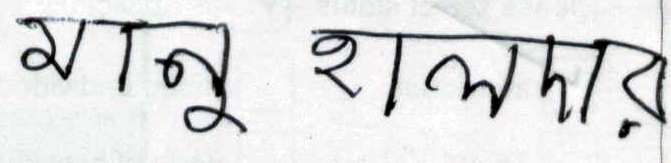 মানু হালদার